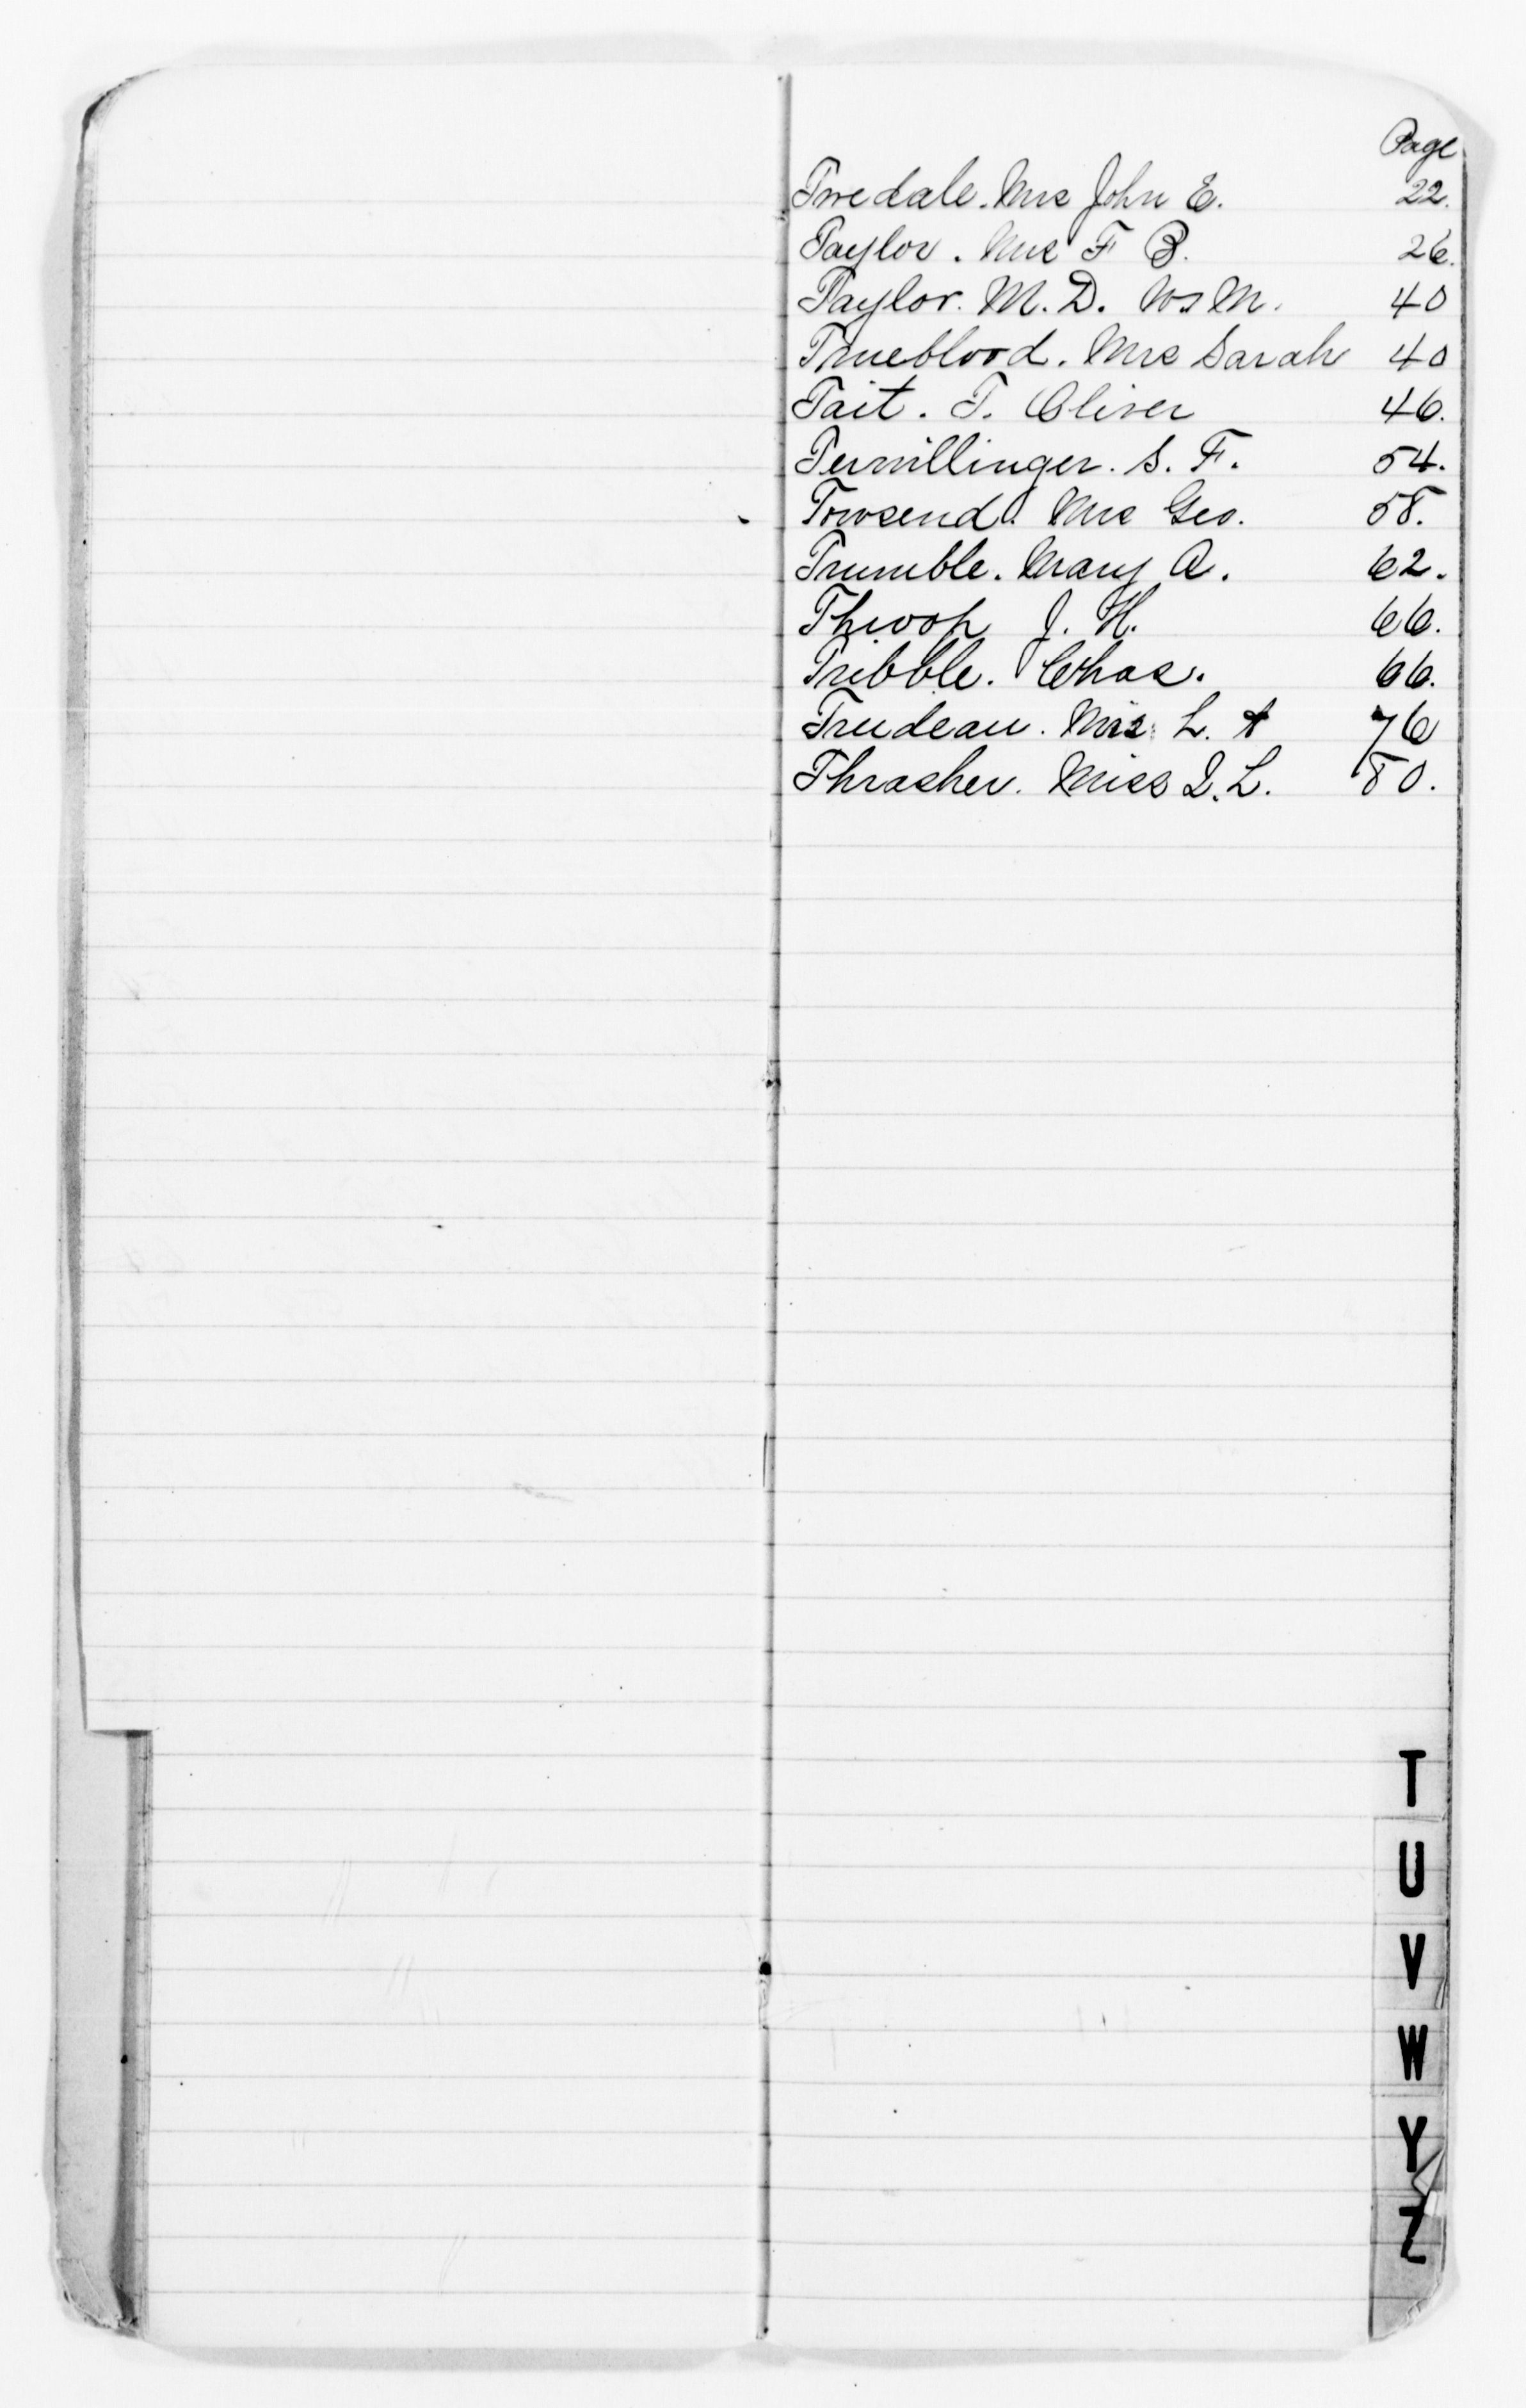 Page
Twedale. Mrs John E. 22.
Taylor. Mrs F B. 26.
Taylor. M.D. W. M. 40
Trueblood. Mrs Sarah 40
Tait. T. Oliver 46.
Terwillinger. S. F. 54.
Towsend. Mrs Geo. 58.
Trumble. Mary A. 62.
Throop J. H. 66.
Tribble. Chas. 66.
Trudeau. Mrs L. A 76
Thrasher. Miss I. L. 80.
T
U
V
W
Y
Z